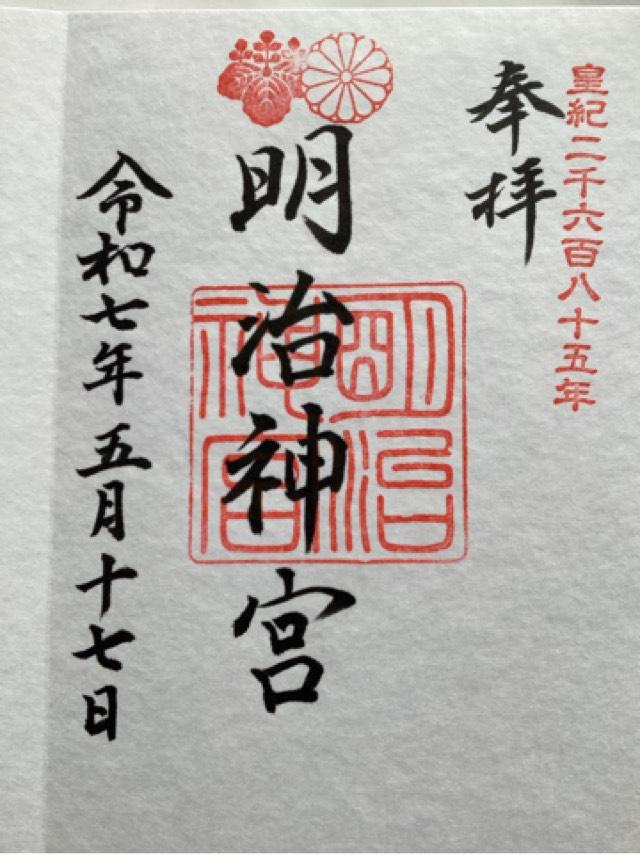 皇紀二千六百八十五年
奉拝
明治神宮
明治神宮
令和七年五月十七日